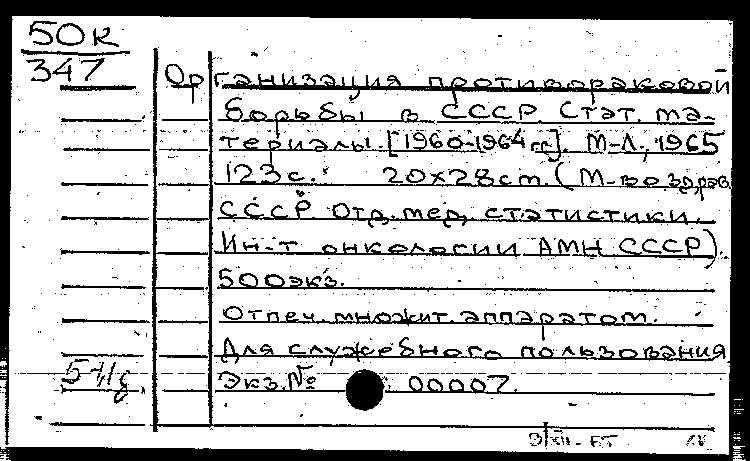 50к
347
Организация противораковой
борьбы в СССР. Стат. ма-
териалы. [1960-1964 гг.]. М-Л., 1965
123 с. 20x28 cm. (М-во здрав.
СССР. Отд. мед. статистики.
Ин-т онкологии АМН СССР).
500 экз.
Отпеч. множит. аппаратом.
Для служебного пользования
Экз. № 00007.